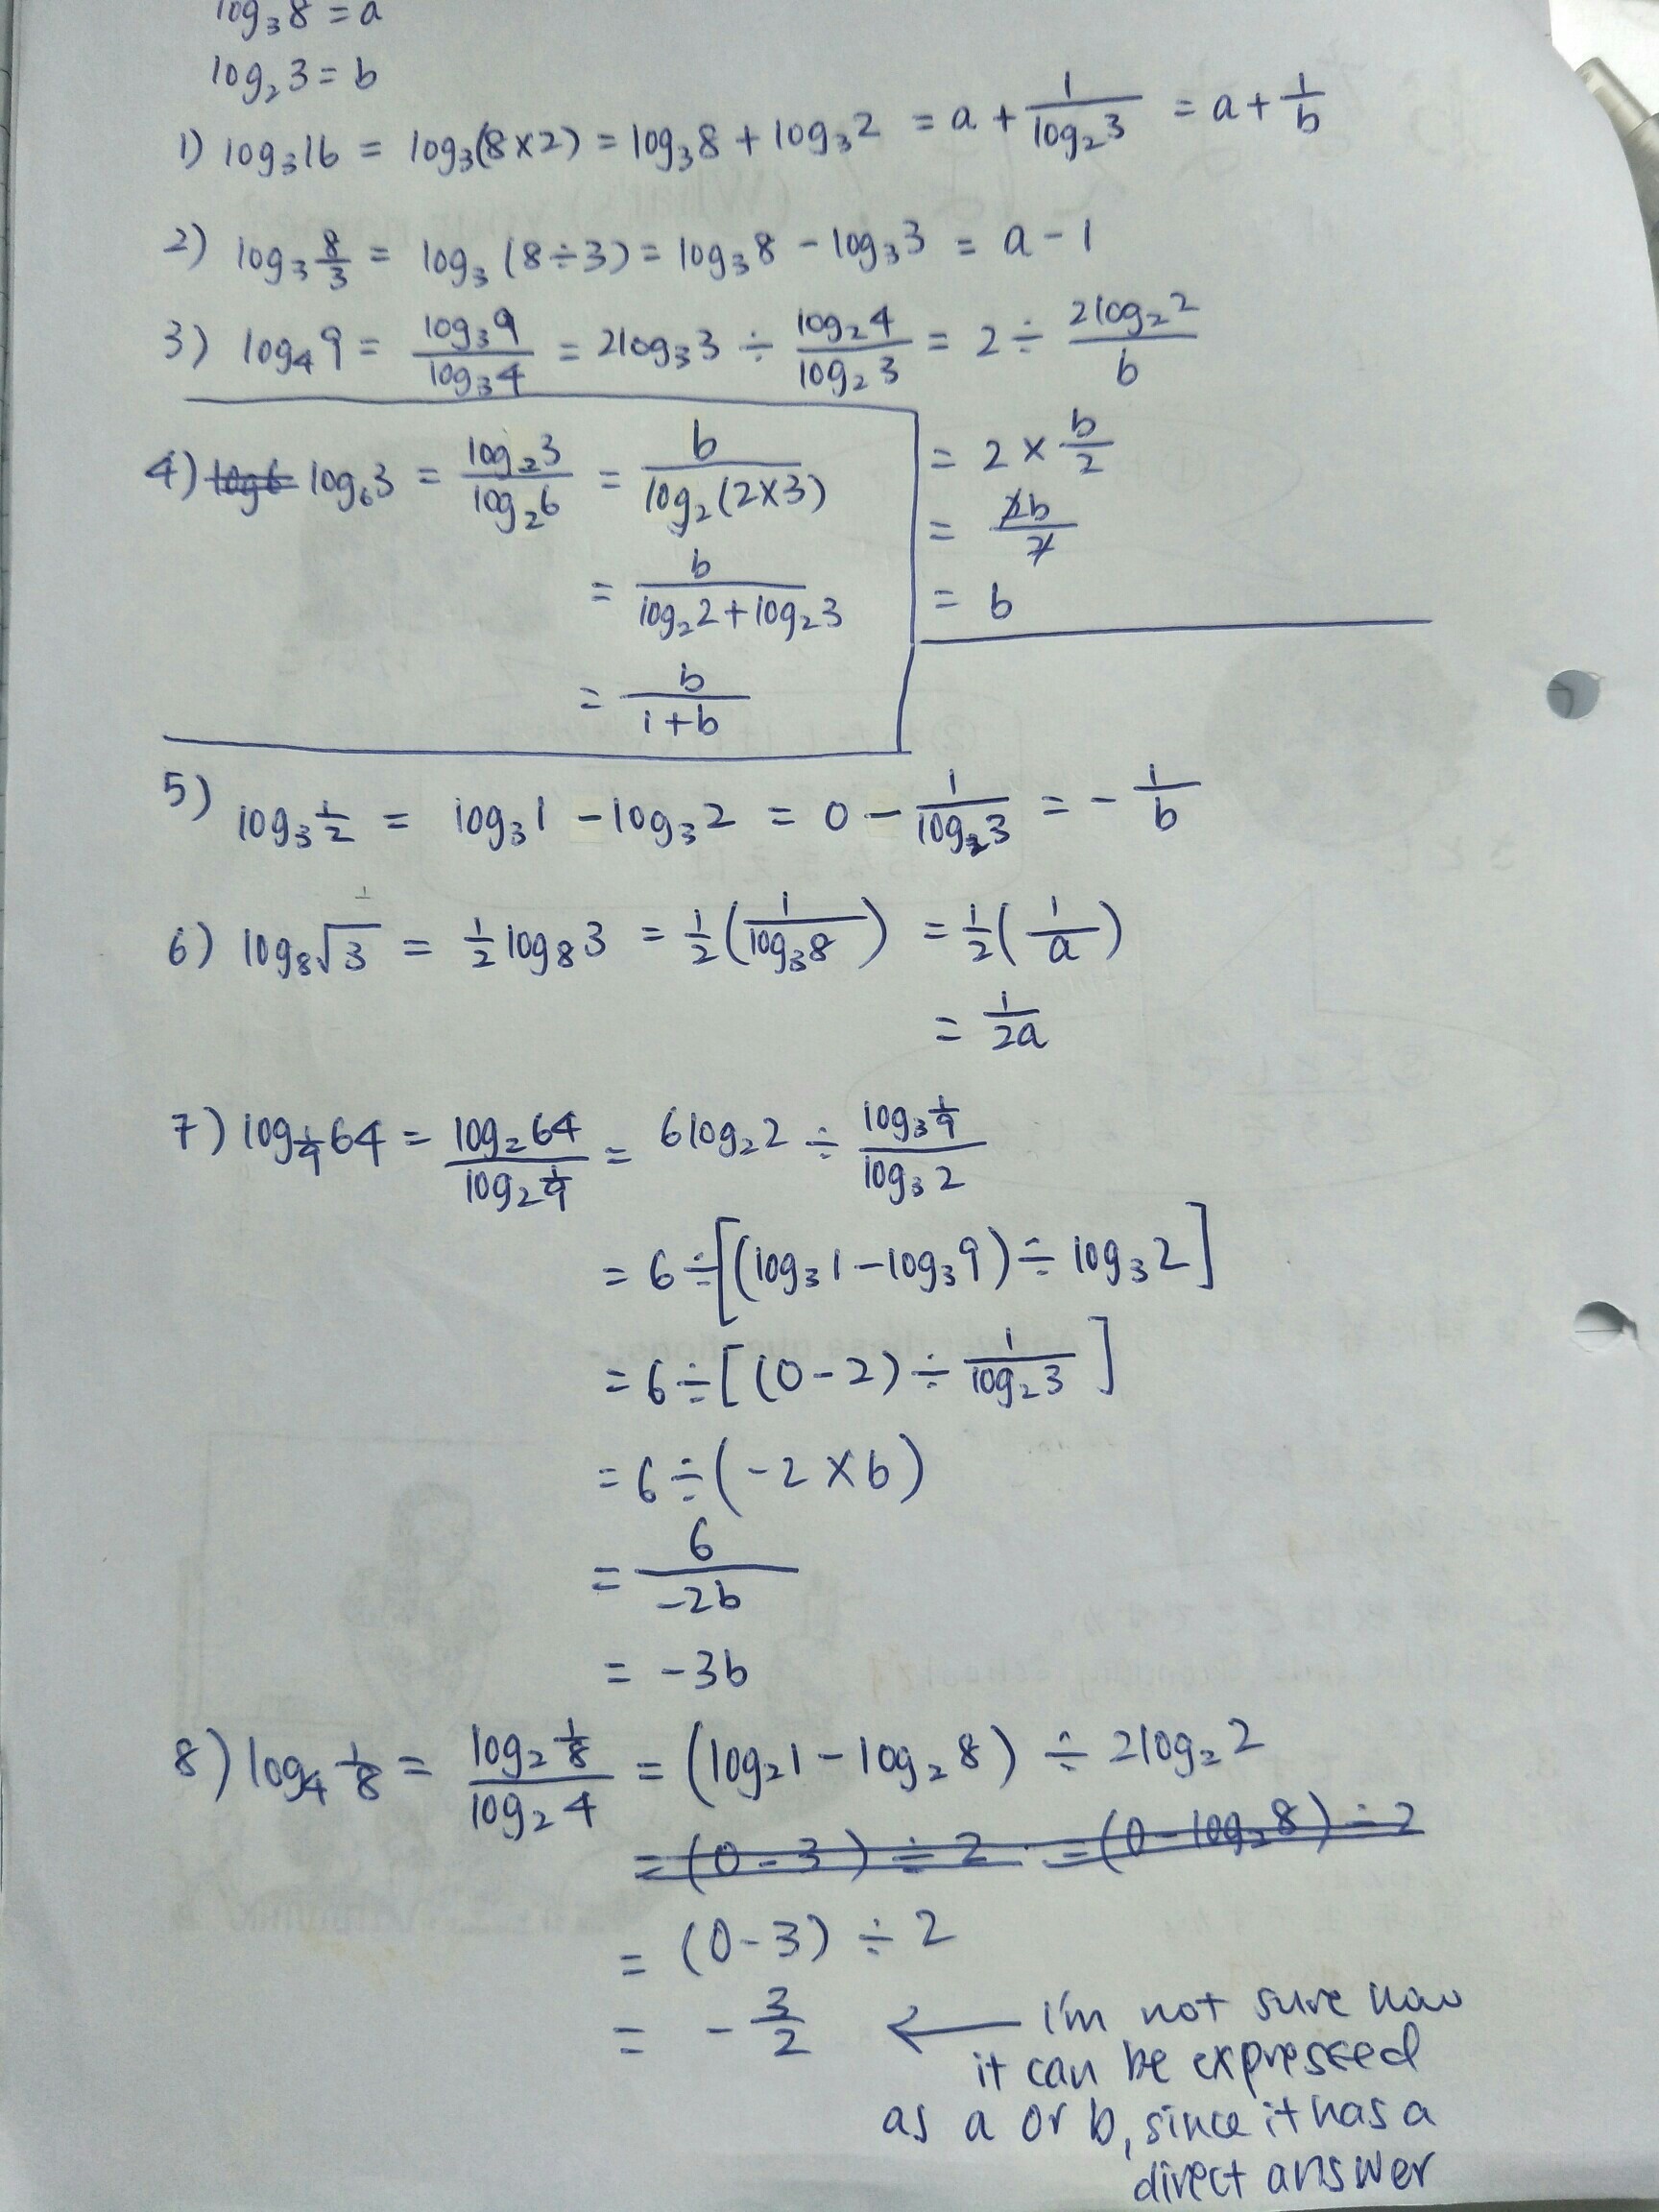 log₃8 = a
log₂3 = b
1) log₃16 = log₃(8×2) = log₃8 + log₃2 = a + 1/log₂3 = a + 1/b
2) log₃ 8/3 = log₃ (8÷3) = log₃8 - log₃3 = a - 1
3) log₄9 = log₃9/log₃4 = 2log₃3 ÷ log₂4/log₂3 = 2 ÷ 2log₂2/b
= 2 × b/2
= 2b/2
= b
4) log6 log₆3 = log₂3/log₂6 = b/log₂(2×3)
= b/log₂2+log₂3
= b/1+b
5) log₃ 1/2 = log₃1 - log₃2 = 0 - 1/log₂3 = - 1/b
6) log₈√3 = 1/2 log₈3 = 1/2 (1/log₃8) = 1/2 (1/a)
= 1/2a
7) log_1/9 64 = log₂64/log₂ 1/9 = 6log₂2 ÷ log₃ 1/9 / log₃2
= 6 ÷ [(log₃1 - log₃9) ÷ log₃2]
= 6 ÷ [(0-2) ÷ 1/log₂3]
= 6 ÷ (-2 × b)
= 6/-2b
= -3b
8) log₄ 1/8 = log₂ 1/8 / log₂4 = (log₂1 - log₂8) ÷ 2log₂2
= (0-3) ÷ 2 = (0-log₂8) ÷ 2
= (0-3) ÷ 2
= - 3/2 ← I'm not sure how
it can be expressed
as a or b, since it has a
direct answer